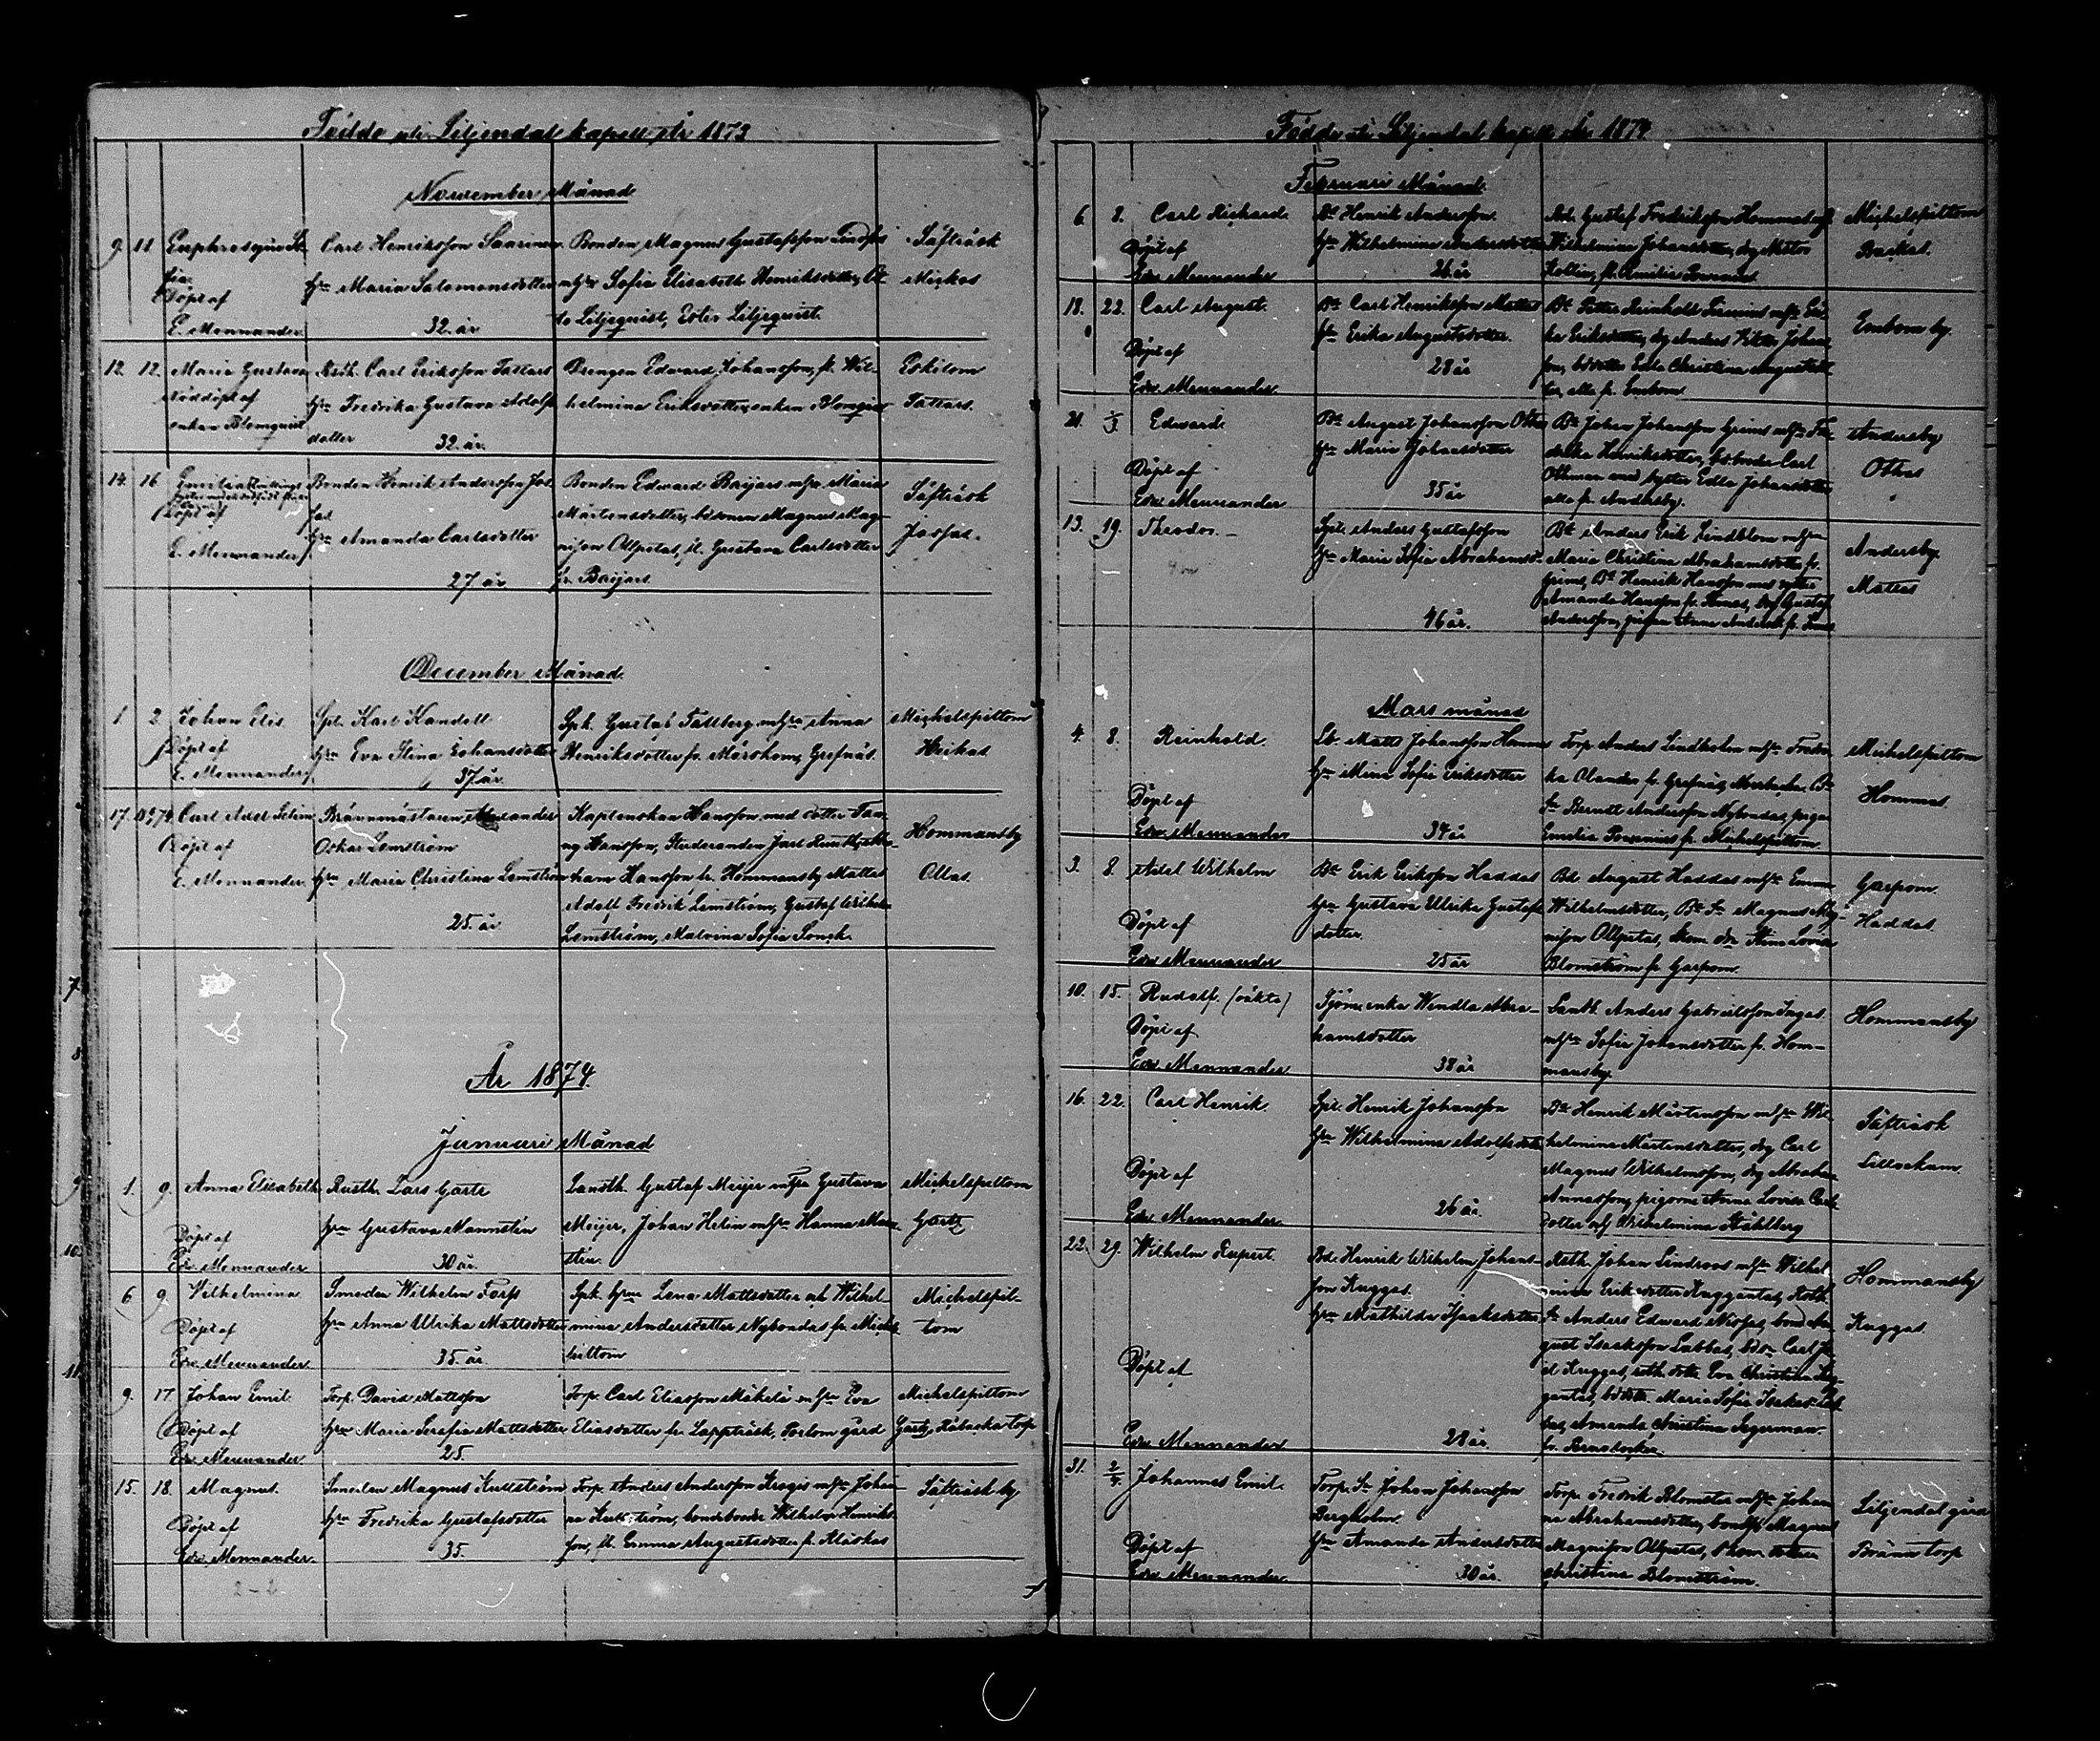 Födde uti Liljendal kapell År 1873
November Månad
9. 11 Euphrosyne So-
fia
Döpt af
E. Mennander
Carl Henriksson Saarinen
hn Maria Salomonsdotter
32. år
Bonden Magnus Gustafsson
mhn Sofia Elisabeth Henriksdotter, Ot-
to Liljeqvist, Ester Liljeqvist.
Säfträsk
Mickos
12. 12. Maria Gustava
nöddöpt af
enkan Blomqvist
Rsth. Carl Eriksson Tattars
hn Fredrika Gustava Adolfs
dotter
32. år.
Drengen Edvard Johansson, fr. Wil-
helmina Eriksdotter, enkan Blomqvist
Eskilom
Tattars.
14. 16 Emilia
Döpt af
E. Mennander
Bonden Henrik Andersson Jos
fas
hn Amanda Carlsdotter
27 år
Bonden Edward Baijars mhn Maria
Mårtensdotter, bdsonen Magnus Mag-
nusson Ollpetas, fl. Gustava Carlsdotter
fr. Baijars
Säfträsk
Josfas.
December Månad
1 2 Johan Elis
Döpt af
E. Mennander
Spl. Karl Kandell
hn Eva Stina Johansdotter
37 år
Sph. Gustaf Tallberg mhn Anna
Henriksdotter fr. Mörskom, Grefnäs.
Michelspiltom
Heikas
17. Carl Axel Selim
Döpt af
E. Mennander
Brännmästaren Alexander
Oskar Lemström
hn Maria Christina Lemström
25. år
Kaptenskan Hansson med dotter Fan-
ny Hansson, Studeranden Jarl
ham Hansson fr. Hommansby Mattas
Adolf Fredrik Lemström, Gustaf Wilhelm
Lemström, Malvina Sofia Sonck.
Hommansby
Ollas.
År 1874.
Januari Månad
1. 9. Anna Elisabeth
Döpt af
Edv. Mennander
Rusth. Lars Gartz
hn Gustava Mannstén
30 år.
Landth. Gustaf Meijer mhn Gustava
Meijer, Johan Helin mhn Hanna Mann-
stén.
Michelspiltom
Gartz
6 9 Wilhelmina
Döpt af
Edv. Mennander
Smeden Wilhelm Forss
hn Anna Ulrika Mattsdotter
35. år
Sph. hn Lena Mattsdotter och Wilhel-
mina Andersdotter Nybondas fr. Michels
piltom
Michelspil-
tom
9. 17. Johan Emil
Döpt af
Edv. Mennander
Torp. David Mattsson
hn Maria Serafia Mattsdotter
25.
Torp. Carl Eliasson Mäkelä mhn Eva
Eliasdotter fr. Lappträsk, Porlom gård
Michelspiltom
Gartz, Råbacka torp
15. 18. Magnus.
Döpt af
Edv. Mennander.
Smeden Magnus Kullström
hn Fredrika Gustafsdotter
35.
Torp. Anders Andersson Krogis mhn Johan-
na Kullström, bondeson Wilhelm Henriks-
son, fl. Emma Augustsdotter fr. Klåckas
Säfträsk by
2-2
Födde uti Liljendal kapell År 1874.
Februari Månad.
6. 8. Carl Richard.
Döpt af
Edv. Mennander
Bd Henrik Andersson.
hn Wilhelmina Andersdotter
26 år
Bd. Gustaf Fredriksson Hommas
Wilhelmina Johansdotter, drg Matts
Kollin, fl. Emilia
Michelspiltom
Backas.
18. 22. Carl August.
Döpt af
Edv. Mennander
Bd Carl Henriksson Mattas
hn Erika Augustsdotter.
28 år
Bd. Petter Reinhold mhn Eri-
ka Eriksdotter, drg Anders Viktor Johans
son, bddotter Edla Christina Augustsdot
ter, alla fr. Embom
Embom by.
21. 1/3 Edward.
Döpt af
Edv. Mennander
Bd August Johansson Othas
hn Maria Johansdotter
35 år
Bd Johan Johansson Grims mhn Fre-
drika Henriksdotter, Carl
Othman med syster Edla Johansdotter
alla fr. Andersby.
Andersby
Othas
13. 19. Theodor.
Spl. Anders Gustafsson
hn Maria Sofia Abrahamsd
46 år.
Bd Anders Erik Lindblom mhn
Maria Christina Abrahamsdotter fr.
Grims, Bd Henrik Hansson med syster
Amanda Hansson fr. drg Gustaf
Andersson, pigan Anna
Andersby.
Mattas
Mars månad
4. 8. Reinhold.
Döpt af
Edv. Mennander
Lb. Matts Johansson Hommas
hn Mina Sofia Eriksdotter
34 år
Torp. Anders Lindholm mhn Fredri-
ka Olander fr. Grefnäs
Sn Berndt Andersson Nybondas, pigan
Emelia fr. Michelspiltom
Michelspiltom
Hommas.
3. 8. Axel Wilhelm
Döpt af
Edv. Mennander
Bd Erik Eriksson Haddas
hn Gustava Ulrika Gustafs
dotter.
25 år
Bd. August Haddas mhn Emma
Wilhelmsdotter, Bd Sn Magnus Mag-
nusson Ollpetas, Stina Lovisa
Blomström fr. Garpom.
Garpom.
Haddas.
10. 15. Rudolf. (oäkta)
Döpt af
Edv. Mennander
Tjörne enka Wendla Abra-
hamsdotter
38 år
Landth. Anders Gabrielsson Ingas
mhn Sofia Johansdotter fr. Hom-
mansby.
Hommansby
16. 22. Carl Henrik.
Döpt af
Edv. Mennander
Spl. Henrik Johansson
hn Wilhelmina Adolfsdotter
26 år.
Bd Henrik Mårtensson mhn Wil-
helmina Mårtensdotter, drg Carl
Magnus Wilhelmsson, drg Abraham
Annasson, pigorne Anna Lovisa Carls
dotter och Wilhelmina Ståhlberg
Säfträsk
Lillockam.
22. 29. Wilhelm Rupert.
Döpt af
Edv. Mennander
Bd. Henrik Wilhelm Johans-
son Kuggas.
hn Mathilda Isaksdotter
28 år
Rsth. Johan Lindroos mhn Wilhel
mina Eriksdotter Kuggantas, Rsth.
Sn Anders Edward Nissas, bond Au-
gust Isaksson Labbas, bdsn Carl
Kuggas, rsth. dotter Eva Christina
gantas, bddotter Maria Sofia Isaksd. Lab
bas, Amanda Christina Segerman
fr.
Hommansby
Kuggas.
31. 2/4. Johannes Emil.
Döpt af
Edv. Mennander
Torp. Sn Johan Johansson
Bergholm.
hn Amanda Andersdotter
30 år.
Torp. Fredrik Blomster mhn Johan
na Abrahamsdotter, bondsn Magnus
Magnusson Ollpetas, dotter
Christina Blomström.
Liljendal gård
Bränn torp